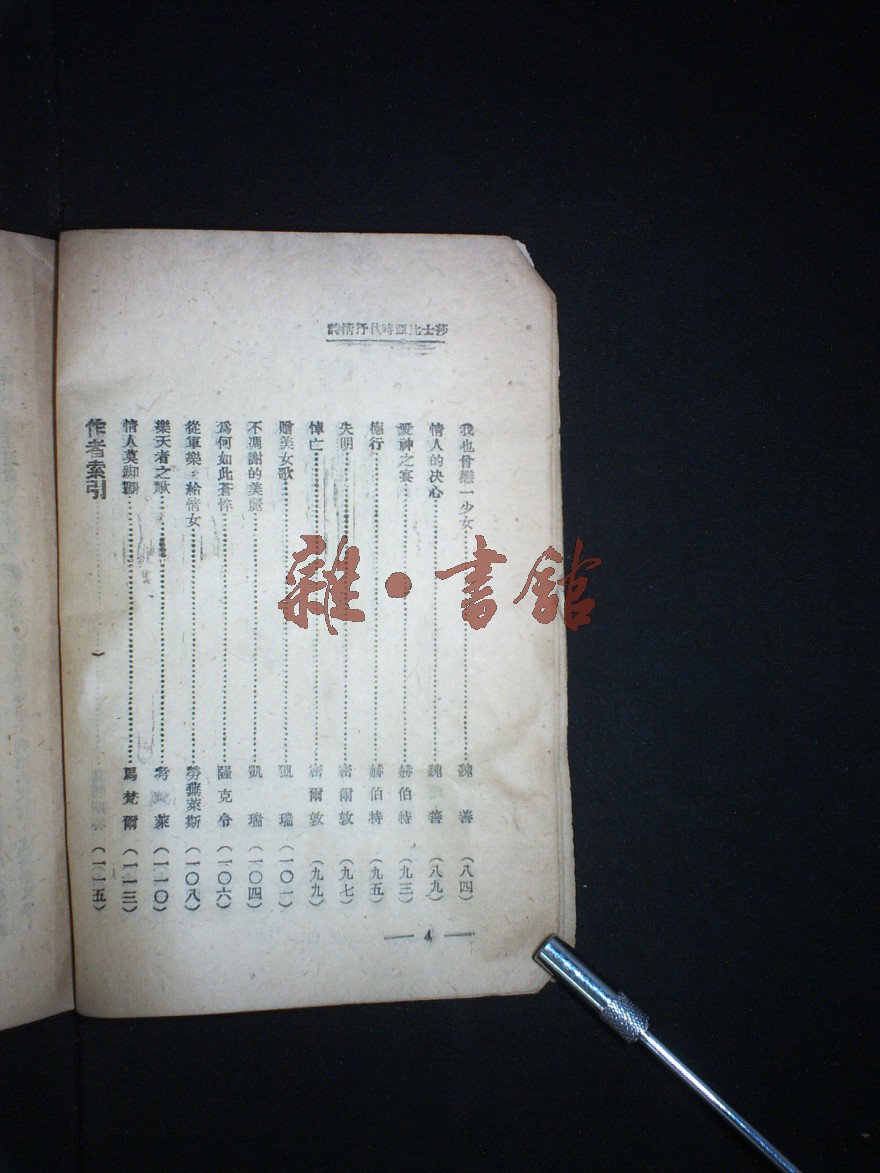 莎士比亞時代抒情詩
我也曾戀一少女 魏善 (八四)
情人的決心 魏善 (八九)
愛神之宴 赫伯特 (九三)
德行 赫伯特 (九五)
失明 密爾敦 (九七)
悼亡 密爾敦 (九九)
贈美女歌 凱瑞 (一〇一)
不凋謝的美麗 凱瑞 (一〇四)
爲何如此蒼悴 薩克令 (一〇六)
從軍樂:給情女 勞僰萊斯 (一〇八)
樂天者之歌 考萊 (一一〇)
情人莫 馬梵爾 (一一三)
作者索引 (一一五)
4
雜·書館